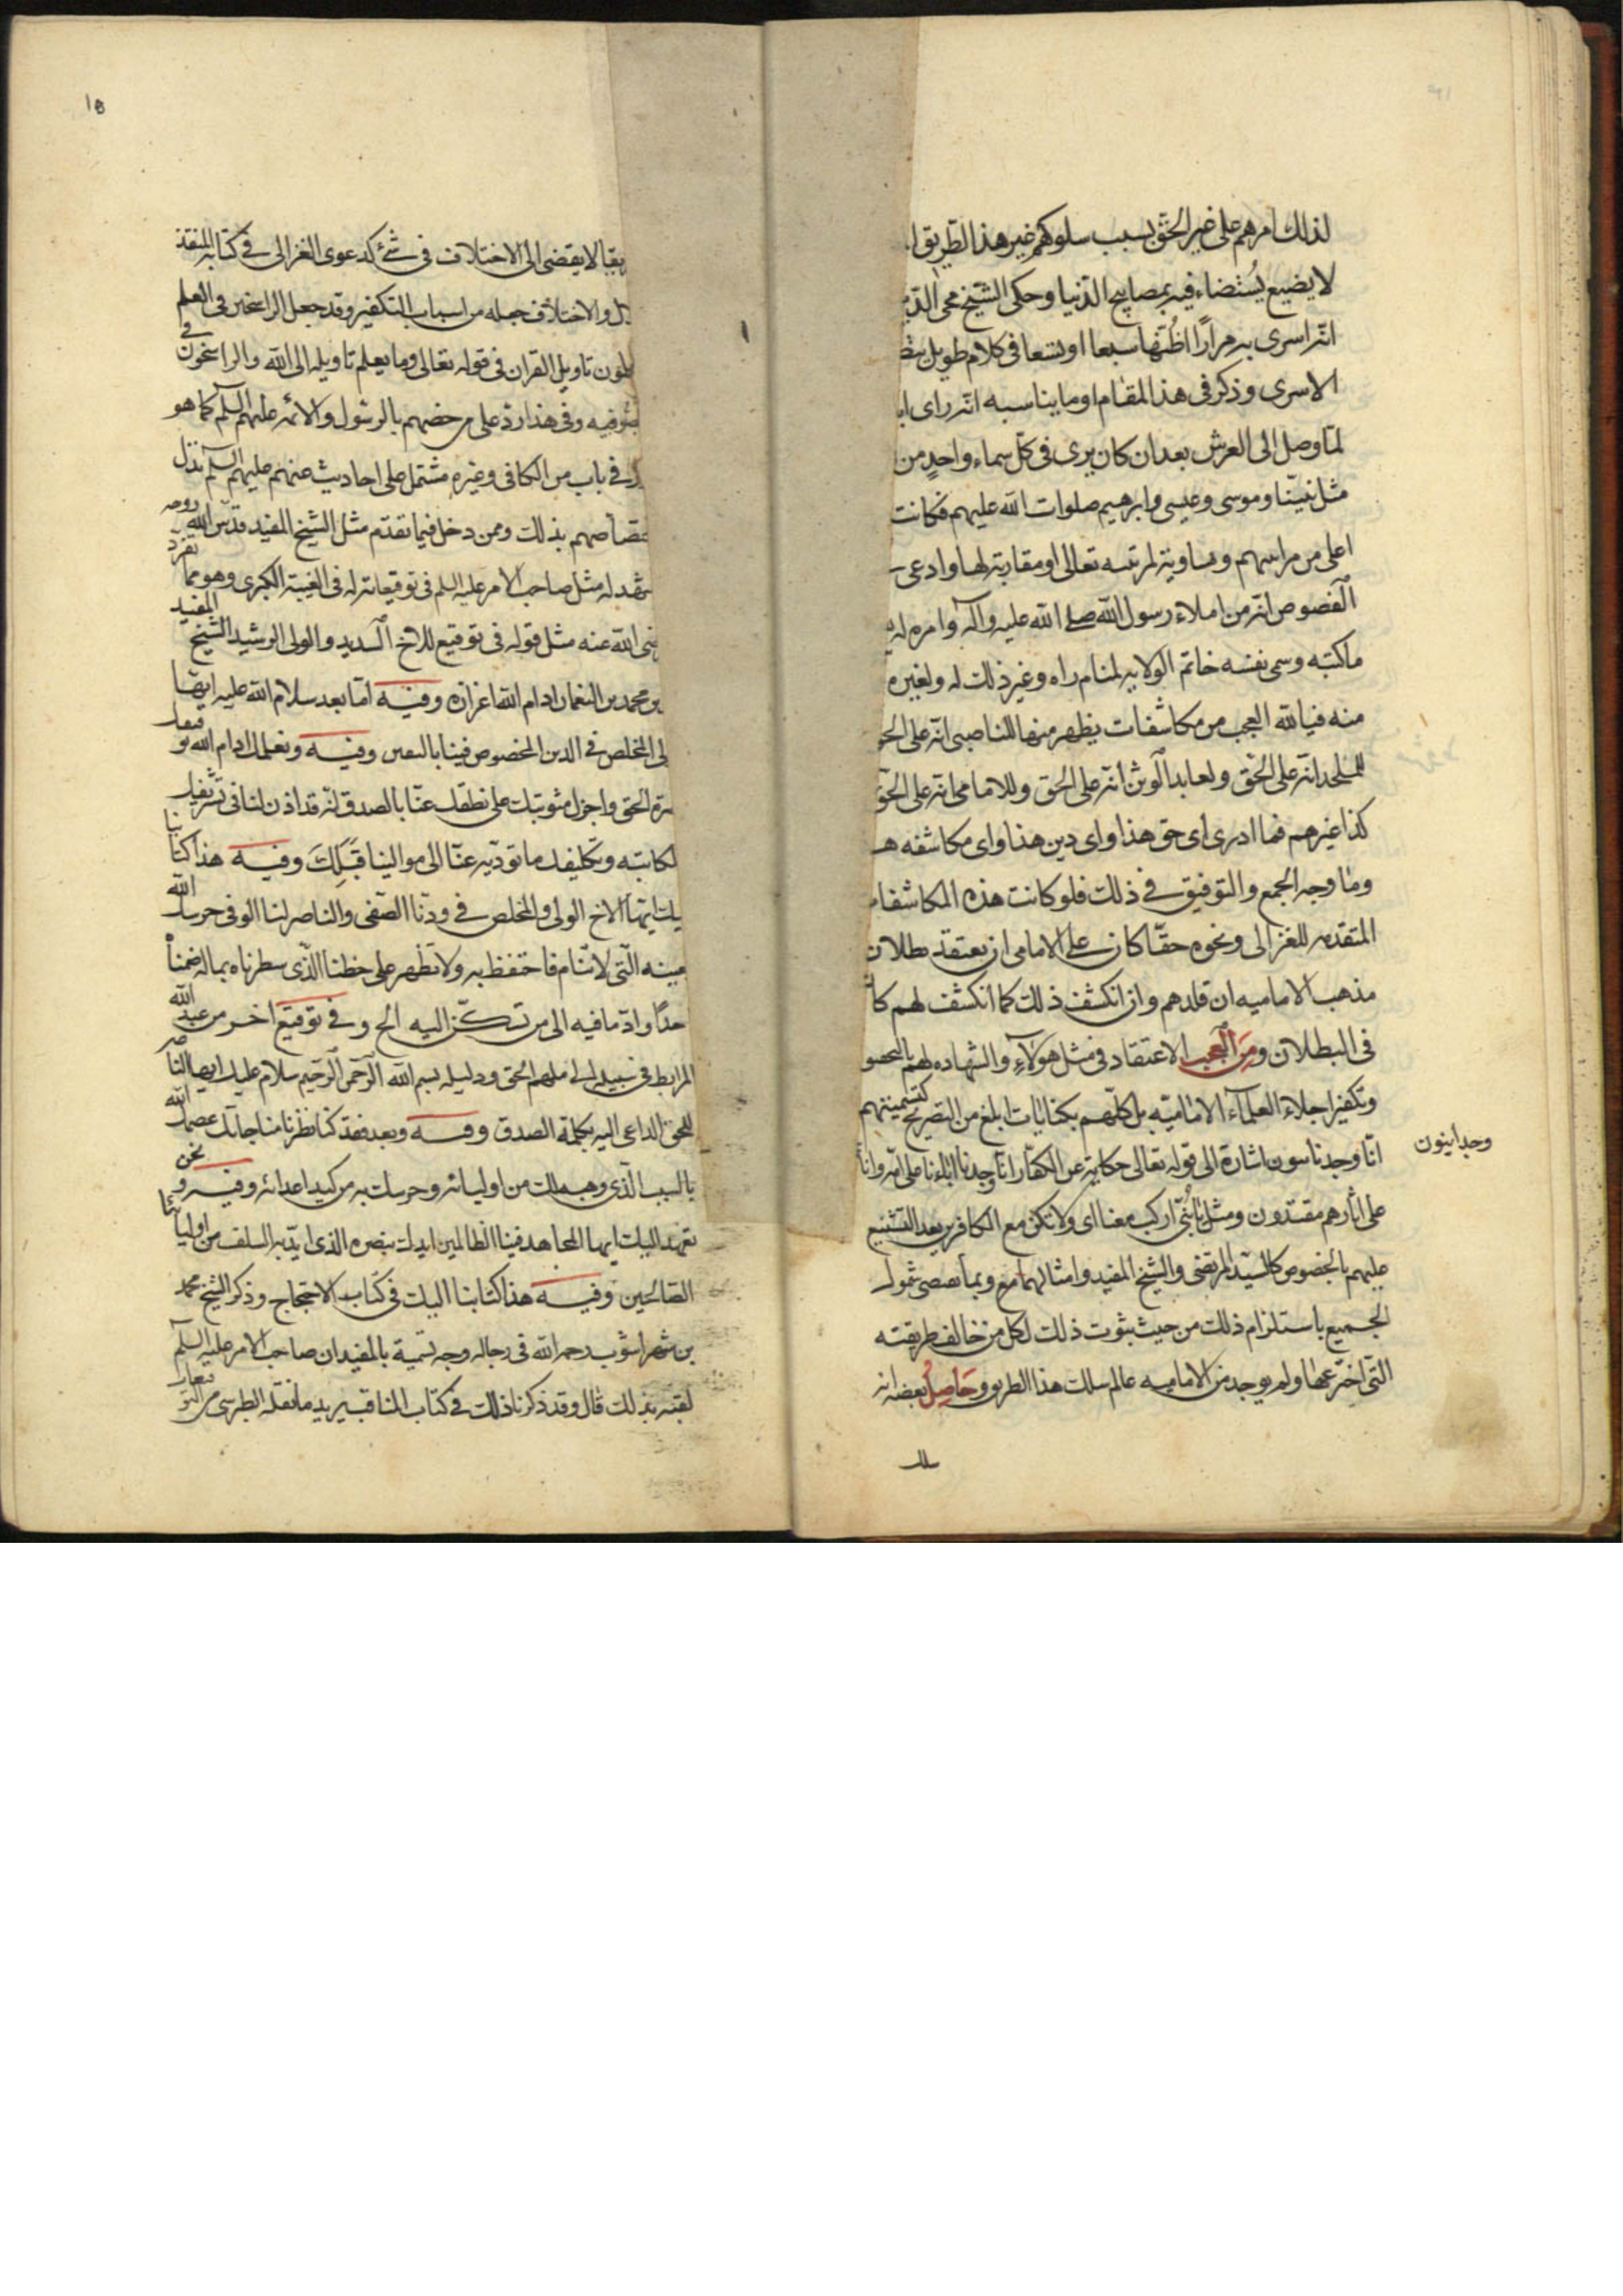 لذلك امرهم على غير الحق بسبب سلوكهم غير هذا الطريق
لا يضيع يستضاء فيه بمصابيح الدنيا وحكى الشيخ محى الدين
انه اسرى به مرارًا اظنها سبعا او تسعا فى كلام طويل
الاسرى وذكر فى هذا المقام او ما يناسبه انه راى
لما وصل الى العرش بعد ان كان يرى فى كل سماء واحدٍ من
مثل نبينا وموسى وعيسى وابرهيم صلوات الله عليهم فكانت
اعلى من مراتبهم ومساوية لمرتبته تعالى او مقاربة لها وادعى
الفصوص انه من املاء رسول الله صلى الله عليه وآله وامره له
ما كتبه وسمى نفسه خاتم الولايه لمنام راه وغير ذلك له ولغيره
منه فيا لله العجب من مكاشفات يظهر منها للناصبى انه على الحق
للملحد انه على الحق ولعابد الوثن انه على الحق وللامامى انه على الحق
كذا غيرهم فما ادرى اى حق هذا واى دين هذا واى مكاشفه
وما وجه الجمع والتوفيق فى ذلك فلو كانت هذه المكاشفات
المتقدمه للغزالى ونحوه حقا كان على الامامى ان يعتقد بطلان
مذهب الاماميه ان قلدهم وان انكشف ذلك كما انكشف لهم
فى البطلان ومن العجب الاعتقاد فى مثل هولآء والشهاده لهم
وتكفير اجلاء العلمآء الاماميه بل كلهم بكنايات ابلغ من التصريح كتسميتهم
انا وجدناسون اشارة الى قوله تعالى حكاية عن الكفار انا وجدنا اباءنا على امة وانا
وجدانيون
على اثارهم مقتدون ومثل يا بنى اركب معنا اى ولا تكن مع الكافرين بعد التشنيع
عليهم بالخصوص كالسيد المرتضى والشيخ المفيد وامثالهما شمول
الجميع باستلزام ذلك من حيث ثبوت ذلك لكل من خالف طريقته
التى اخترعها ولم يوجد من الاماميه عالم سلك هذا الطريق وحاصل بعضه انه
18
لا يقضى الى الاختلاف فى شئ كدعوى الغزالى فى كتابه المنقذ
والاختلاف جعله من اسباب التكفير وقد جعل الراسخين فى العلم
تاويل القران فى قوله تعالى وما يعلم تاويله الى الله والراسخون فى
وفى هذا رد على من خصهم بالرسول والائمه عليهم السلم كما هو
فى باب من الكافى وغيره مشتمل على احاديث عنهم عليهم السلم تدل
بذلك وممن دخل فيما تقدم مثل الشيخ المفيد قدس الله روحه
له مثل صاحب الامر عليه السلم فى توقيعاته له فى الغيبة الكبرى وهو مما تفرد
الله عنه مثل قوله فى توقيع للاخ السديد والولى الرشيد الشيخ المفيد
بن محمد بن النعمان ادام الله اعزازه وفيه اما بعد سلام الله عليك ايها
المخلص فى الدين المخصوص فينا باليقين وفيه ونعلمك ادام الله
الحق واجزل مثوبتك على نطقك عنا بالصدق انه قد اذن لنا فى تشريفك
وتكليفك ما توديه عنا الى موالينا قبلك وفيه هذا كتابنا
ايها الاخ الولى والمخلص فى ودنا الصفى والناصر لنا الوفى حرسك الله
التى لا تنام فاحتفظ به ولا تظهر على خطنا الذى سطرناه بماله ضمناه
واد ما فيه الى من تسكن اليه الخ وفى توقيع اخر من عبد الله
المرابط فى سبيله الى ملهم الحق ودليله بسم الله الرحمن الرحيم سلام عليك ايها الناصر
للحق الداعى اليه بكلمة الصدق وفيه وبعد فقد كنا نظرنا مناجاتك عصمك الله
بالسبب الذى وهبه لك من اوليائه وحرسك به من كيد اعدائه وفيه ونحن
نعهد اليك ايها المجاهد فينا الظالمين ايدك بنصره الذى ايد به السلف من اوليائنا
الصالحين وفيه هذا كتابنا اليك فى كتاب الاحتجاج وذكر الشيخ محمد
بن شهراشوب رحمه الله فى رجاله وجه تسمية بالمفيد ان صاحب الامر عليه السلم
لقبه بذلك قال وقد ذكرنا ذلك فى كتاب المناقب يريد ما نقله الطبرسى من